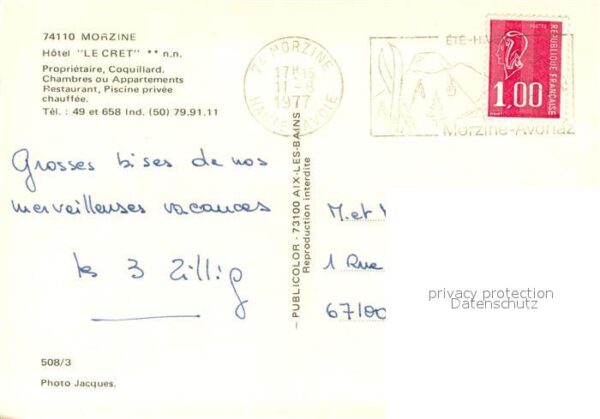 74110 MORZINE
Hôtel "LE CRET" ** n.n.
Propriétaire, Coquillard.
Chambres ou Appartements
Restaurant, Piscine privée
chauffée.
Tél. : 49 et 658 Ind. (50) 79.91.11
74 MORZINE
17H15
11-8
1977
HAUTE-SAVOIE
ÉTÉ-HI
Morzine-Avoriaz
POSTES
1,00
REPUBLIQUE FRANÇAISE
Grosses bises de nos
merveilleuses vacances
les 3 Zillig
— PUBLICOLOR - 73100 AIX-LES-BAINS —
Reproduction interdite
M. et
1 Rue
67100
privacy protection
Datenschutz
508/3
Photo Jacques.